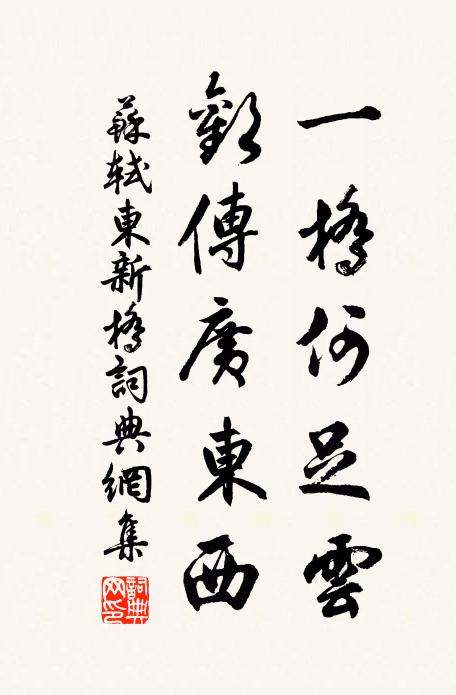 一橋何足雲
歡傳廣東西
蘇軾東新橋詞典網集
詞典
网印